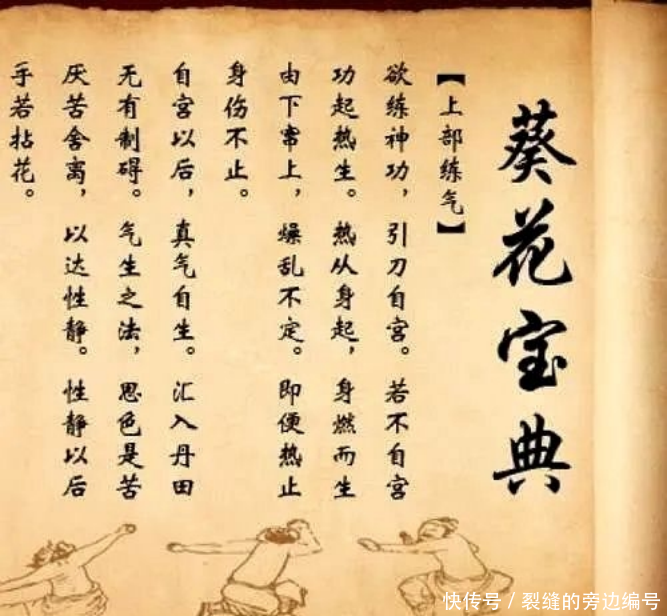 葵花宝典
【上部练气】
欲练神功，引刀自宫。若不自宫
功起热生。热从身起，身燃而生
由下窜上，燥乱不定。即便热止
身伤不止。
自宫以后，真气自生。汇入丹田
无有制碍。气生之法，思色是苦
厌苦舍离，以达性静。性静以后
手若拈花。
快传号 / 裂缝的旁边编号